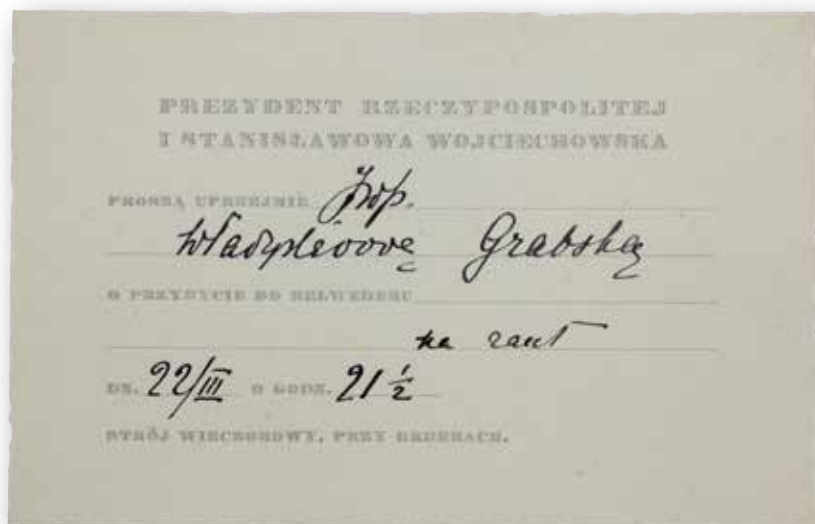 PREZYDENT RZECZYPOSPOLITEJ
I STANISŁAWOWA WOJCIECHOWSKA
PROSZĄ UPRZEJMIE JWP.
Władysławową Grabską
O PRZYBYCIE DO BELWEDERU
na raut
DN. 22/III O GODZ. 21 ½
STRÓJ WIECZOROWY, PRZY ORDERACH.